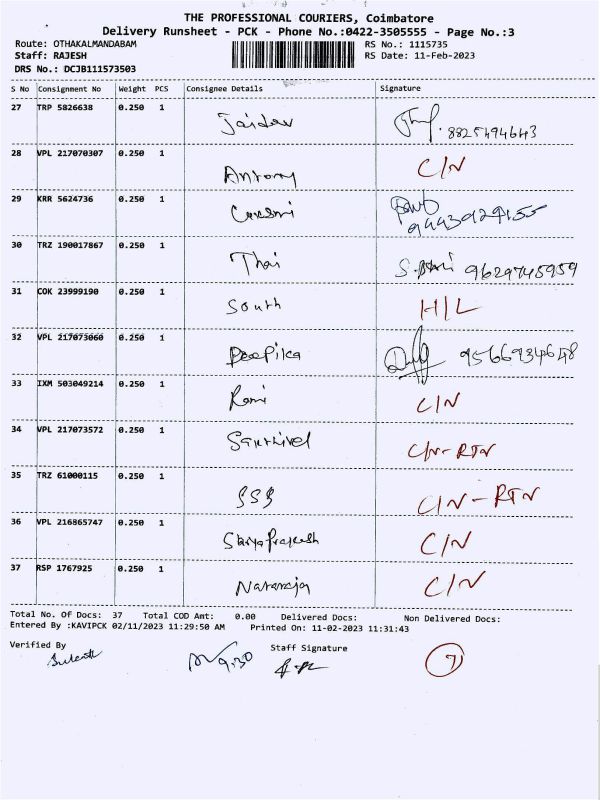 THE PROFESSIONAL COURIERS, Coimbatore
Delivery Runsheet - PCK - Phone No.:0422-3505555 - Page No.:3
Route: OTHAKALMANDABAM RS No.: 1115735
Staff: RAJESH RS Date: 11-Feb-2023
DRS No.: DCJB111573503
S No Consignment No Weight PCS Consignee Details Signature
27 TRP 5826638 0.250 1 Jaidev 8825494643
28 VPL 217070307 0.250 1 Antony C/N
29 KRR 5624736 0.250 1 9443929155
30 TRZ 190017867 0.250 1 Thai 9629745959
31 COK 23999190 0.250 1 South H/L
32 VPL 217073060 0.250 1 Deepika 9566934648
33 IXM 503049214 0.250 1 C/N
34 VPL 217073572 0.250 1 Santhivel C/N-RTN
35 TRZ 61000115 0.250 1 SSB C/N-RTN
36 VPL 216865747 0.250 1 C/N
37 RSP 1767925 0.250 1 Nataraja C/N
Total No. Of Docs: 37 Total COD Amt: 0.00 Delivered Docs: Non Delivered Docs:
Entered By :KAVIPCK 02/11/2023 11:29:50 AM Printed On: 11-02-2023 11:31:43
Verified By Staff Signature
9.30 7